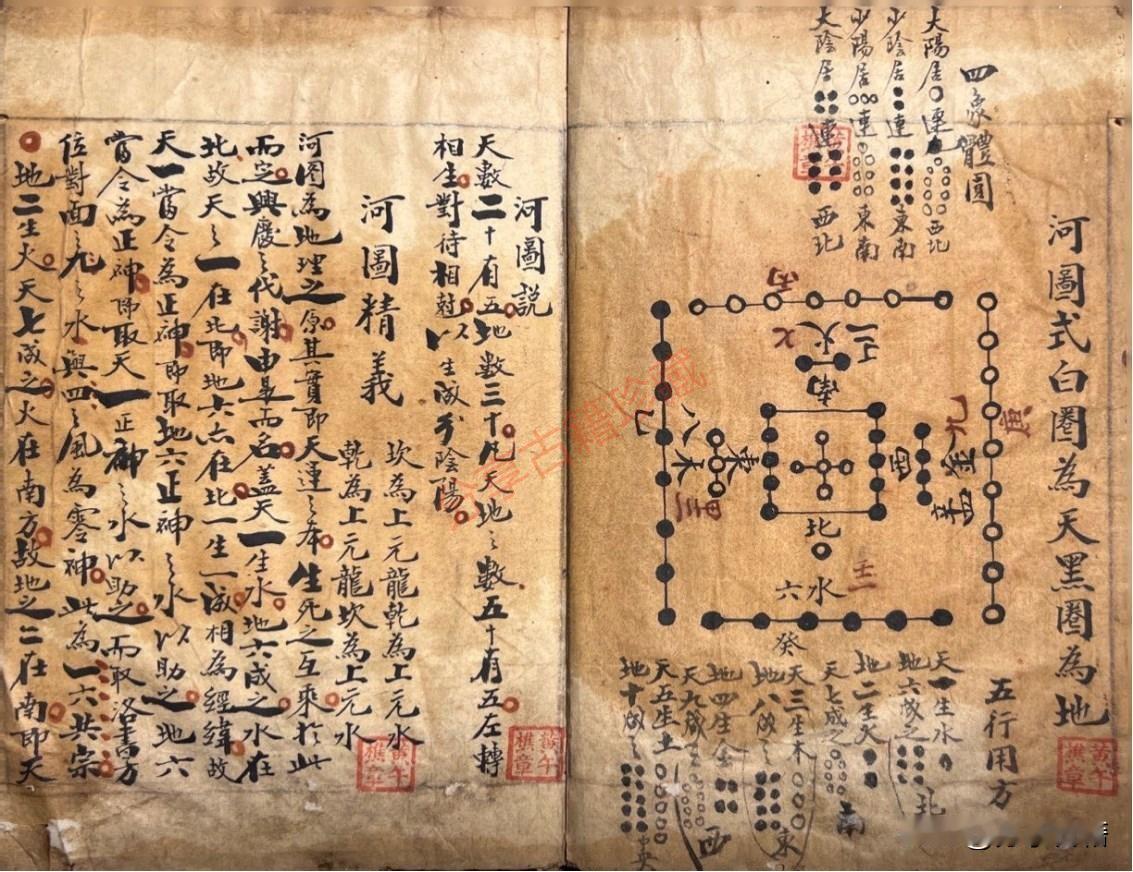 河圖式白圈為天黑圈為地
四象體圓
太陽居連西北
少陰居連東南
少陽居連東南
太陰居連西北
丙
七
二火
南
乙
八
木
東
三甲
西
金
九
庚
四辛
北
六水
壬一
癸
五行用方
天一生水
地六成之
北
地二生火
天七成之
南
天三生木
地八成之
東
地四生金
天九成之
西
天五生土
地十成之
中央
河圖説
天數二十有五地數三十凡天地之數五十有五左轉
相生對待相尅以生成分陰陽
河圖精義
坎為上元龍乾為上元水
乾為上元龍坎為上元水
河圖為地理之原其實即天運之本生死之互乘於此
而定興廢之代謝由是而名蓋天一生水地六成之水在
北故天之一在北即地六亦在北一生一成相為經緯故
天一當令為正神即取地六正神之水以助之地六
當令為正神即取天一正神之水以助之而取洛書方
位對面之九之水與四之風為零神此為一六共宗
地二生火天七成之火在南方故地之二在南即天
黃午樵章
黃午樵章
黃午樵章
黃午樵章
古籍珍藏